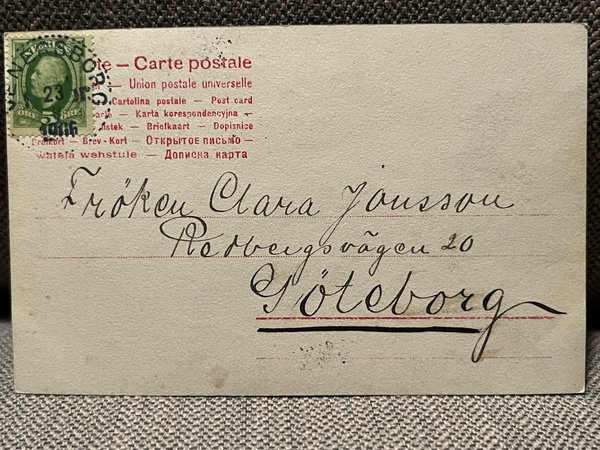 5 ÖRE
VENERSBORG
23
1906
– Carte postale
– Union postale universelle
Cartolina postale – Post card
– Karta korespondencyjna –
– Briefkaart – Dopisnice
– Brev-Kort – Открытое письмо –
wstule – Дописна карта
Fröken Clara Jonsson
Redbergsvägen 20
Göteborg